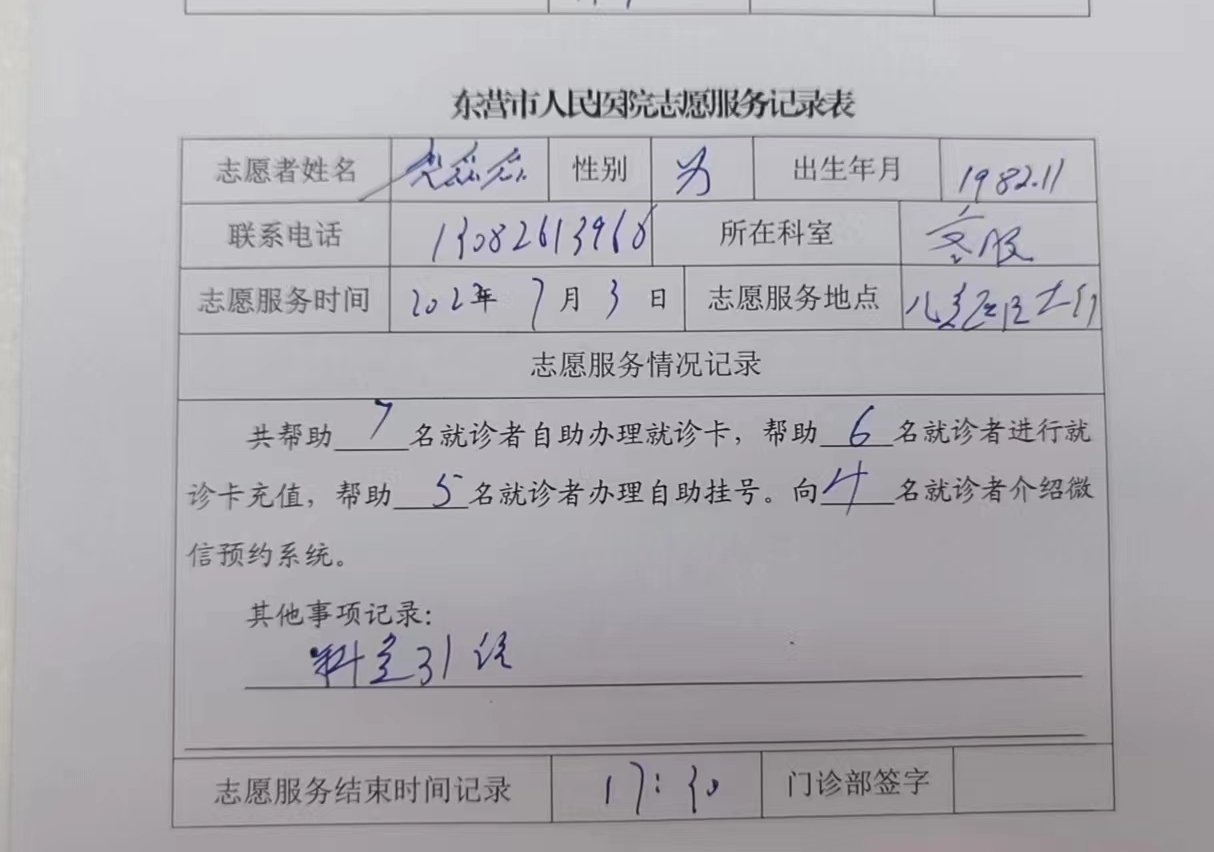 东营市人民医院志愿服务记录表
志愿者姓名 性别 出生年月 1982.11
联系电话 13082613968 所在科室 客服
志愿服务时间 2023年 7月 3日 志愿服务地点
志愿服务情况记录
共帮助 7 名就诊者自助办理就诊卡，帮助 6 名就诊者进行就
诊卡充值，帮助 5 名就诊者办理自助挂号。向 4 名就诊者介绍微
信预约系统。
其他事项记录：
科室引
志愿服务结束时间记录 17:30 门诊部签字